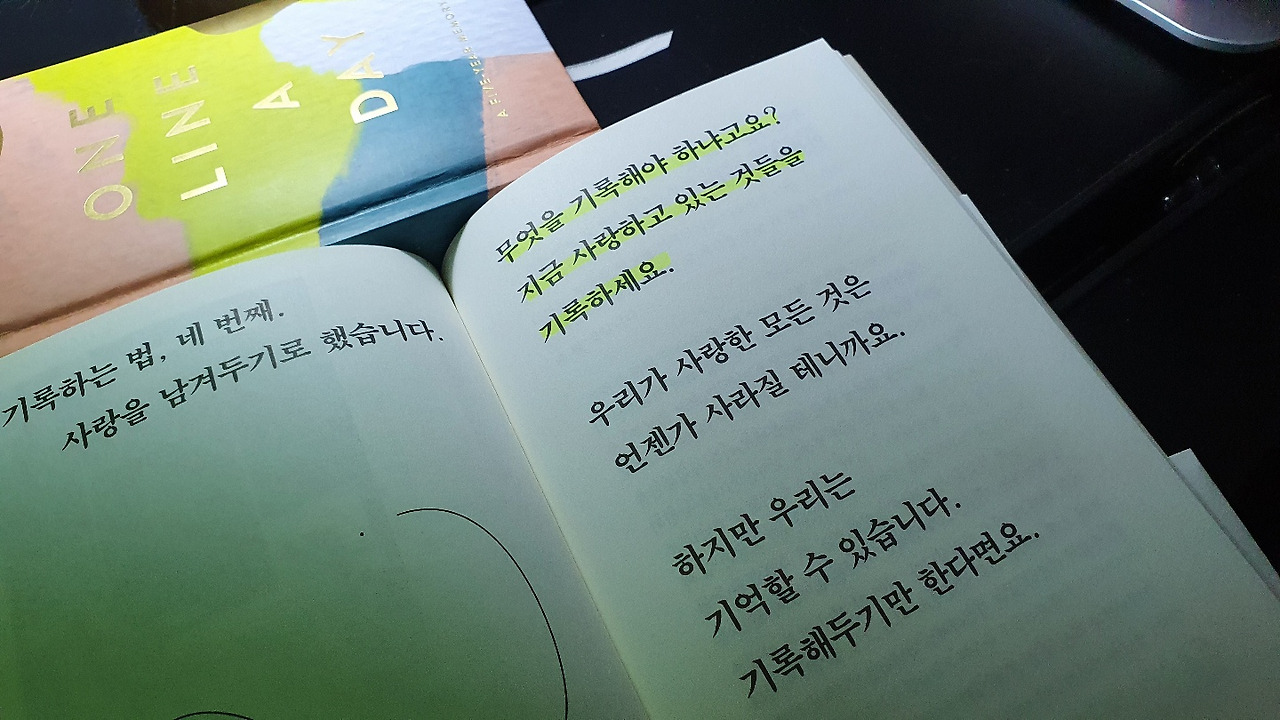 ONE
LINE
A
DAY
A FIVE-YEAR MEMORY
기록하는 법, 네 번째.
사랑을 남겨두기로 했습니다.
무엇을 기록해야 하냐고요?
지금 사랑하고 있는 것들을
기록하세요.
우리가 사랑한 모든 것은
언젠가 사라질 테니까요.
하지만 우리는
기억할 수 있습니다.
기록해두기만 한다면요.